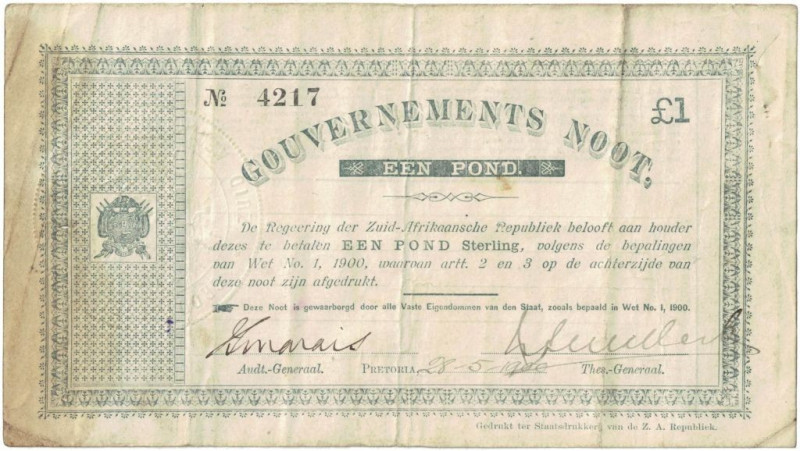 № 4217
£1
GOUVERNEMENTS NOOT,
EEN POND.
De Regeering der Zuid-Afrikaansche Republiek belooft aan houder
dezes te betalen EEN POND Sterling, volgens de bepalingen
van Wet No. 1, 1900, waarvan artt. 2 en 3 op de achterzijde van
deze noot zijn afgedrukt.
Deze Noot is gewaarborgd door alle Vaste Eigendommen van den Staat, zooals bepaald in Wet No. 1, 1900.
Audt.-Generaal. PRETORIA, 28-5-1900 Thes.-Generaal.
Gedrukt ter Staatsdrukkerij van de Z. A. Republiek.